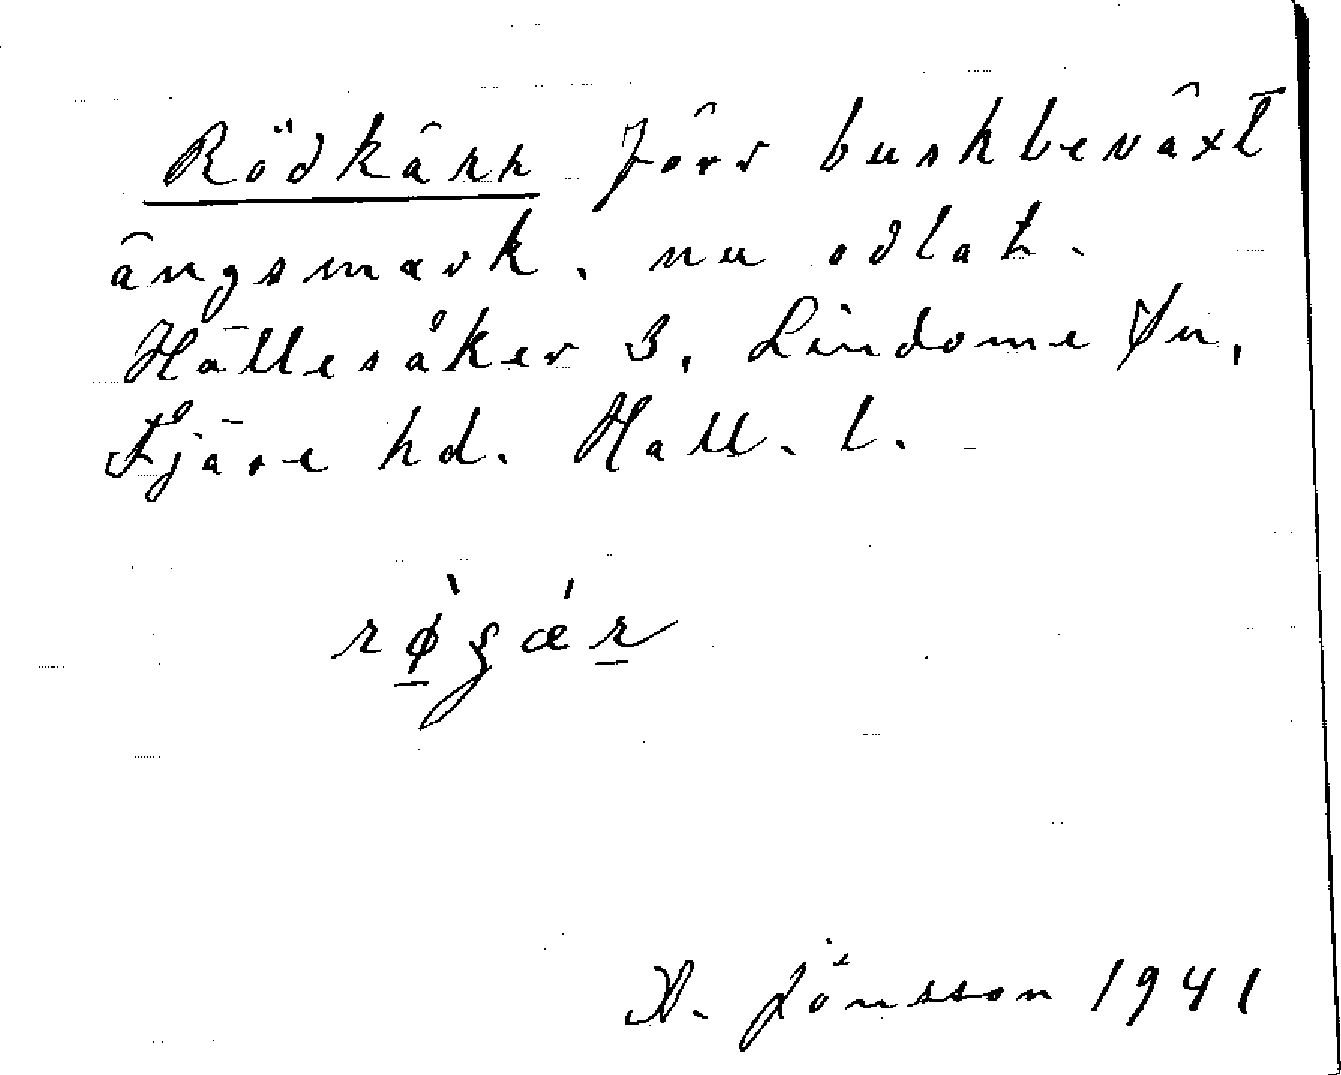 Rödkärr förr buskbeväxt
ängsmark, nu odlat.
Hällesåker 3, Lindome sn,
Fjäre hd. Hall. l.
A. Jönsson 1941